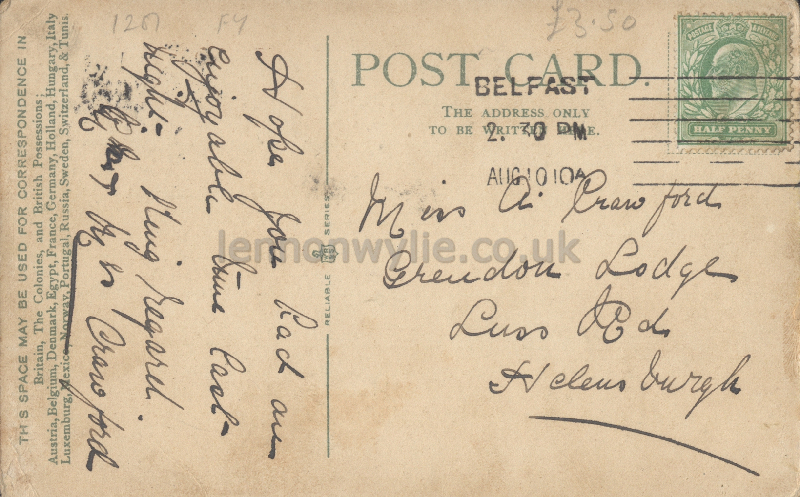 1207 F4 £3.50
POST CARD.
THE ADDRESS ONLY
TO BE WRITTEN HERE.
BELFAST
2. 30 PM
AUG 10 10A
POSTAGE REVENUE
HALF PENNY
THIS SPACE MAY BE USED FOR CORRESPONDENCE IN
Britain, The Colonies, and British Possessions;
Austria, Belgium, Denmark, Egypt, France, Germany, Holland, Hungary, Italy
Luxemburg, Mexico, Norway, Portugal, Russia, Sweden, Switzerland, & Tunis.
Hope you had an
enjoyable time last
night. King Regard
Crawford
RELIABLE SERIES.
Miss A. Crawford
Grendon Lodge
Luss Rd
Helensburgh
lennonwylie.co.uk